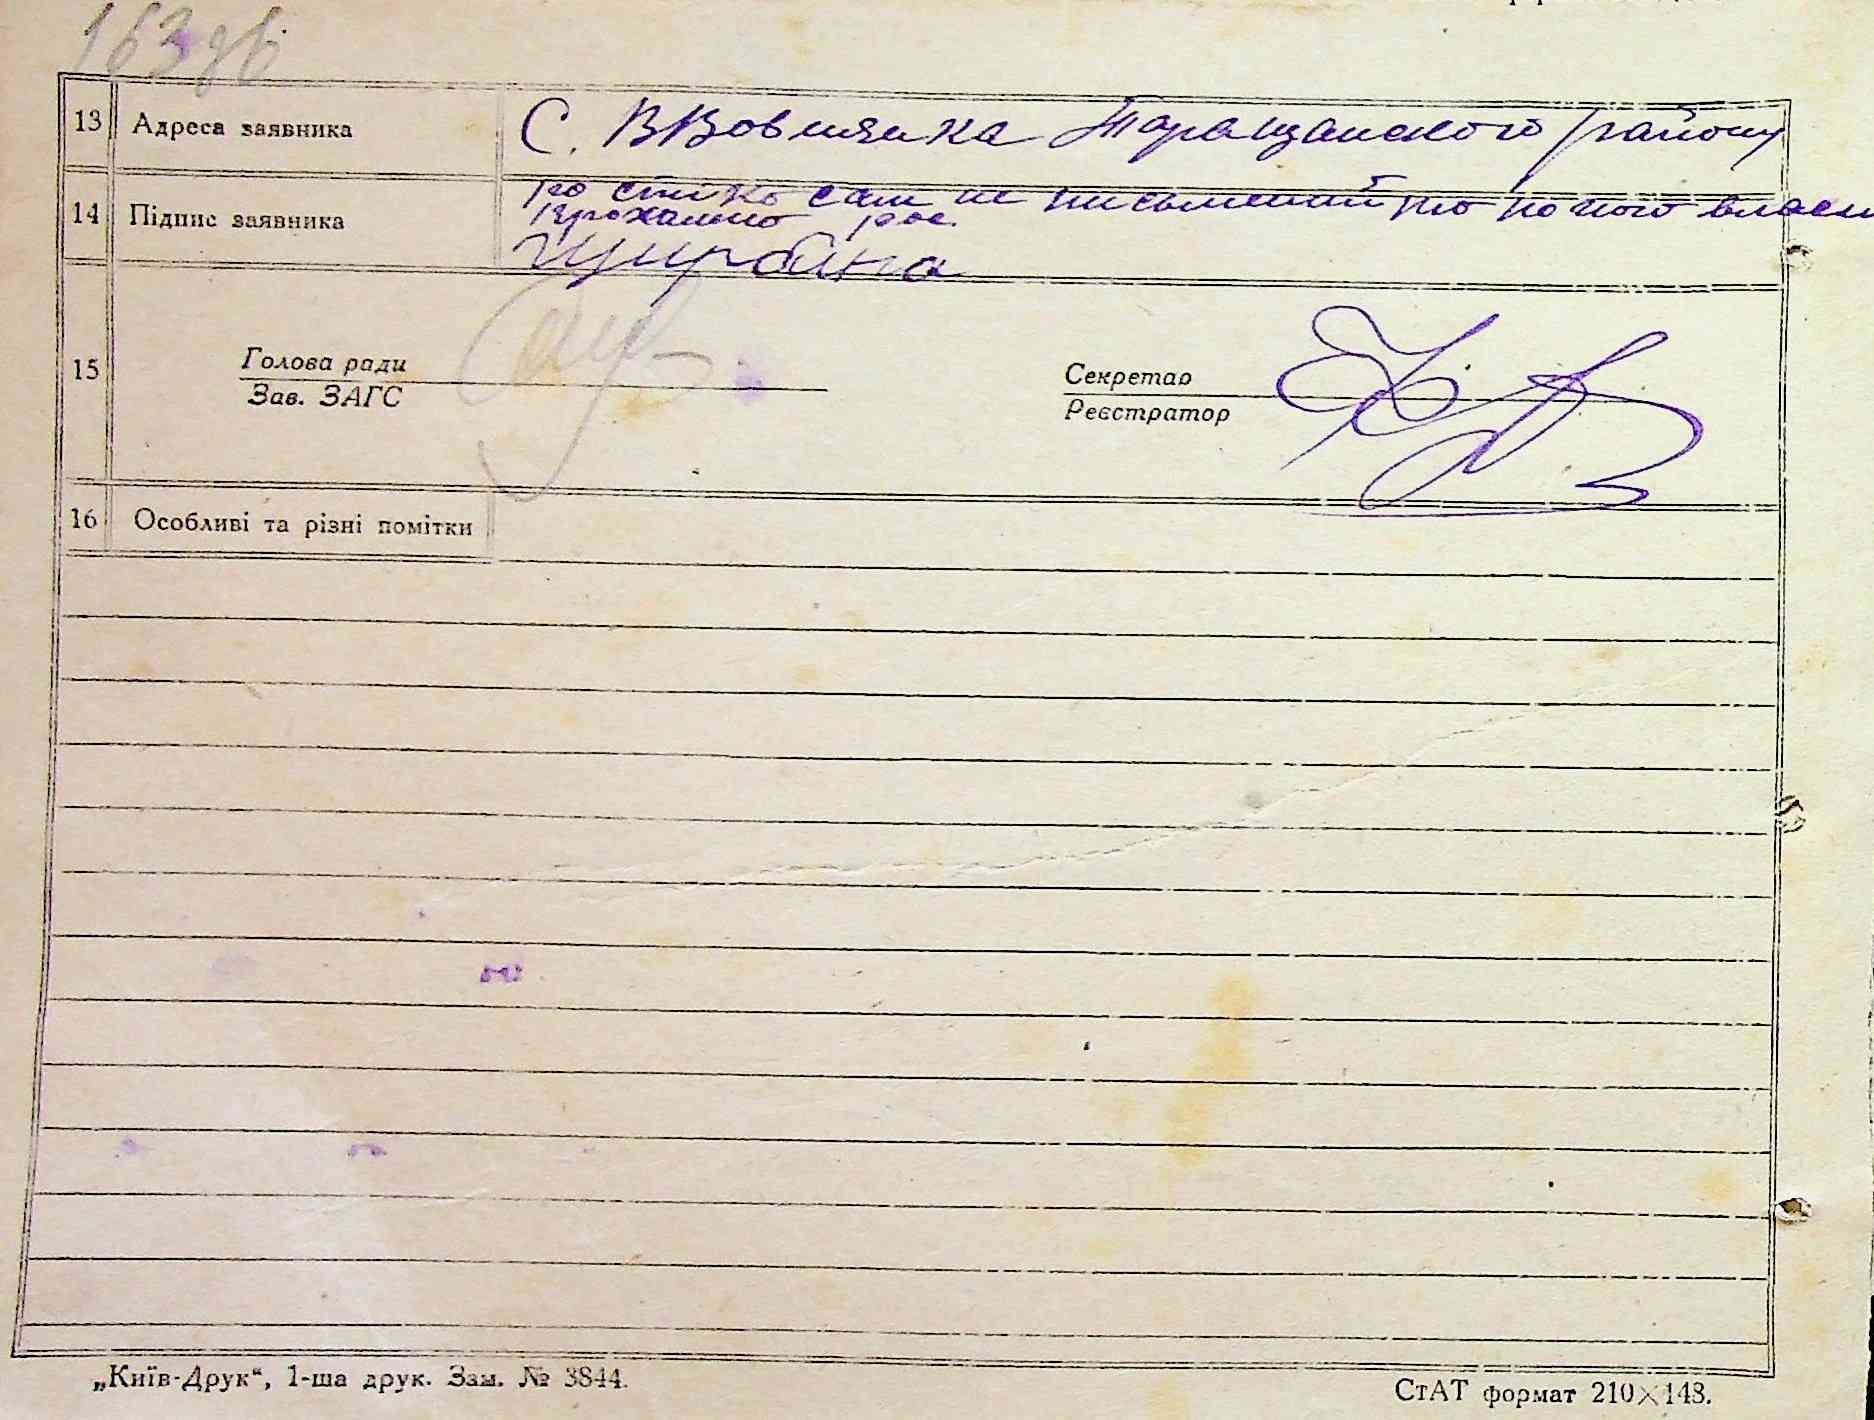 163 зв.
13 Адреса заявника С. ВВовнянка Таращанского району
14 Підпис заявника
сам не письмений то по його власн
проханню рос.
Щирбина
15 Голова ради
Зав. ЗАГС
Секретар
Реєстратор
16 Особливі та різні помітки
„Київ-Друк“, 1-ша друк. Зам. № 3844.
СтАТ формат 210×148.